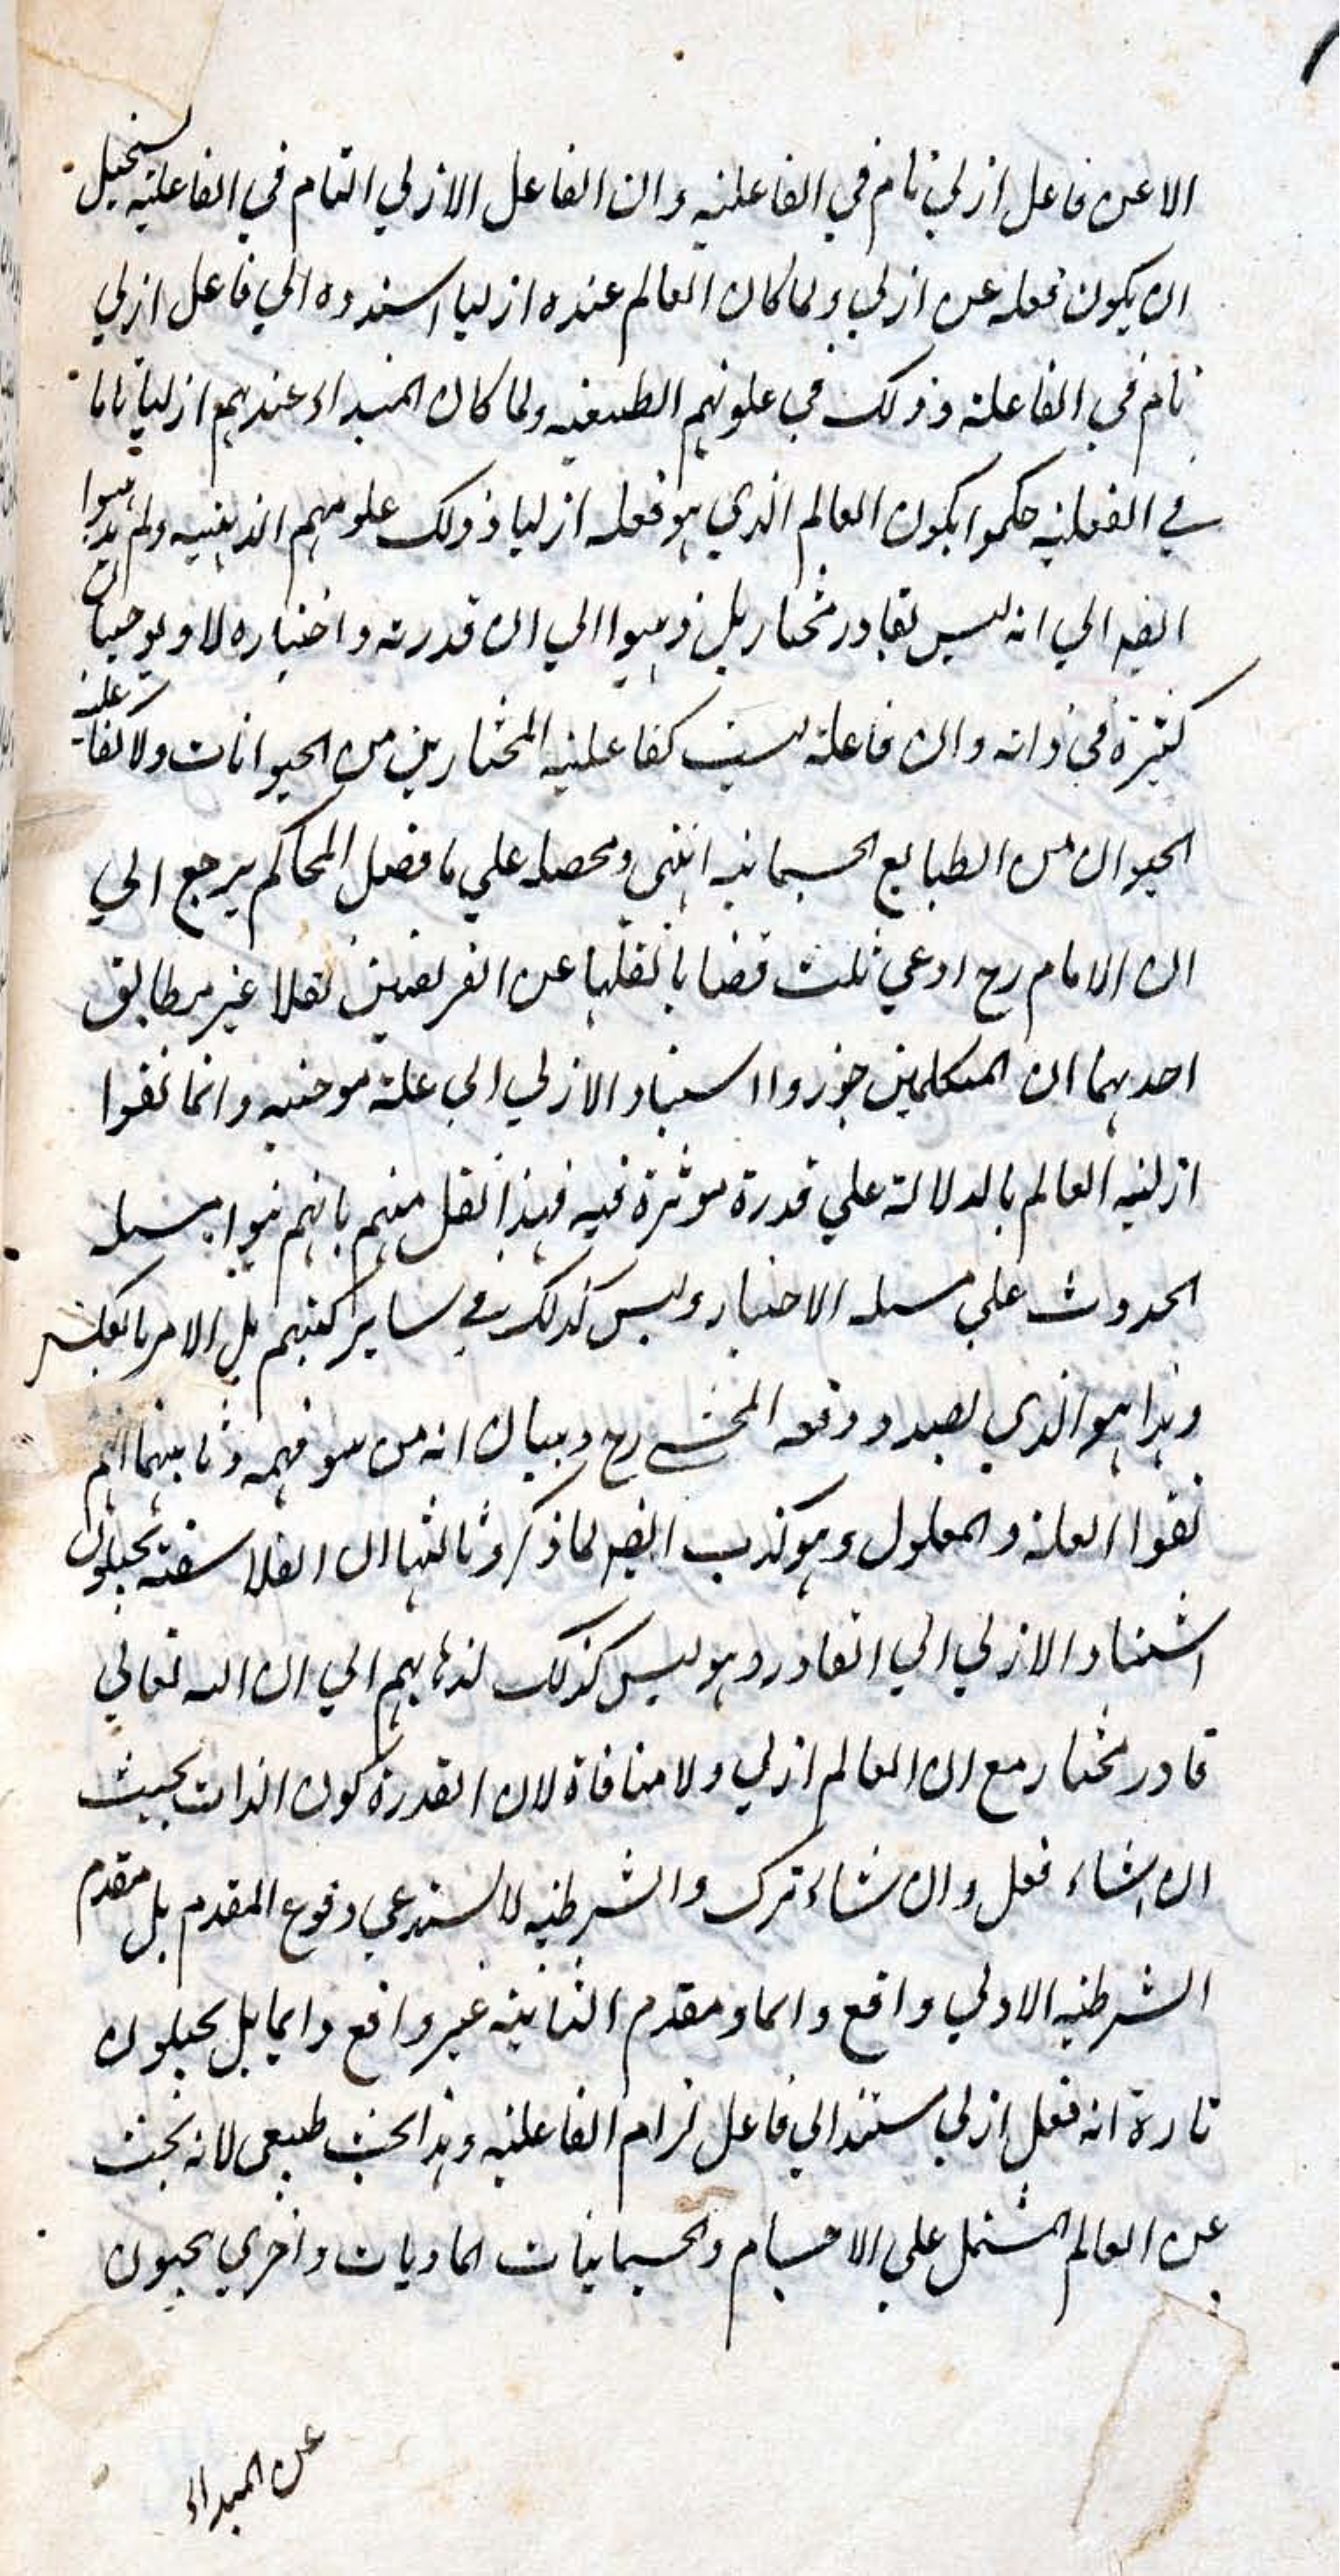 الا عن فاعل ازلي تام في الفاعلية وان الفاعل الازلي التام في الفاعلية يستحيل
ان يكون فعله غير ازلي ولما كان العالم عندهم ازليا اسندوه الي فاعل ازلي
تام في الفاعلية وذلك في علومهم الطبيعية ولما كان المبداء عندهم ازليا تاما
في الفعلية حكموا بكون العالم الذي هو فعله ازليا وذلك علومهم الالهية ولم يذهبوا
ايضا الي انه ليس بقادر مختار بل ذهبوا الي ان قدرته واختياره لا يوجبان
كثيرة في ذاته وان فاعلية ليست كفاعلية المختارين من الحيوانات ولا كفاعلية
الحيوان من الطبايع الجسمانية انتهي ومحصله علي ما فصل المحاكم يرجع الي
ان الامام رح ادعي ثلث قضايا نقلها عن الفريقين نقلا غير مطابق
احديهما ان المتكلمين جوزوا استناد الازلي الي علة موجبة وانما نفوا
ازلية العالم بالدلالة علي قدرة موثرة فيه فهذا نقل منهم بانهم بنوا مسله
الحدوث علي مسله الاختيار وليس كذلك في ساير كتبهم بل الامر بالعكس
وهذا هو الذي بصدد دفعه المحشي رح وبيان انه من سو فهمه وثانيهما انهم
نفوا العلة والمعلول وهو كذب ايضا لما ذكر وثالثها ان الفلاسفة يحيلون
استناد الازلي الي القادر وهو ليس كذلك لذهابهم الي ان الله تعالي
قادر مختار مع ان العالم ازلي ولا منافاة لان القدرة كون الذات بحيث
ان شاء فعل وان شاء ترك والشرطية لا تستدعي وقوع المقدم بل مقدم
الشرطية الاولي واقع دايما ومقدم الثانية غير واقع دايما بل يحيلون
تارة انه فعل ازلي مستند الي فاعل تام الفاعلية وهذا البحث طبيعي لانه بحث
عن العالم المشتمل علي الاجسام والجسمانيات الماديات واخري يحيون
عن المبداء